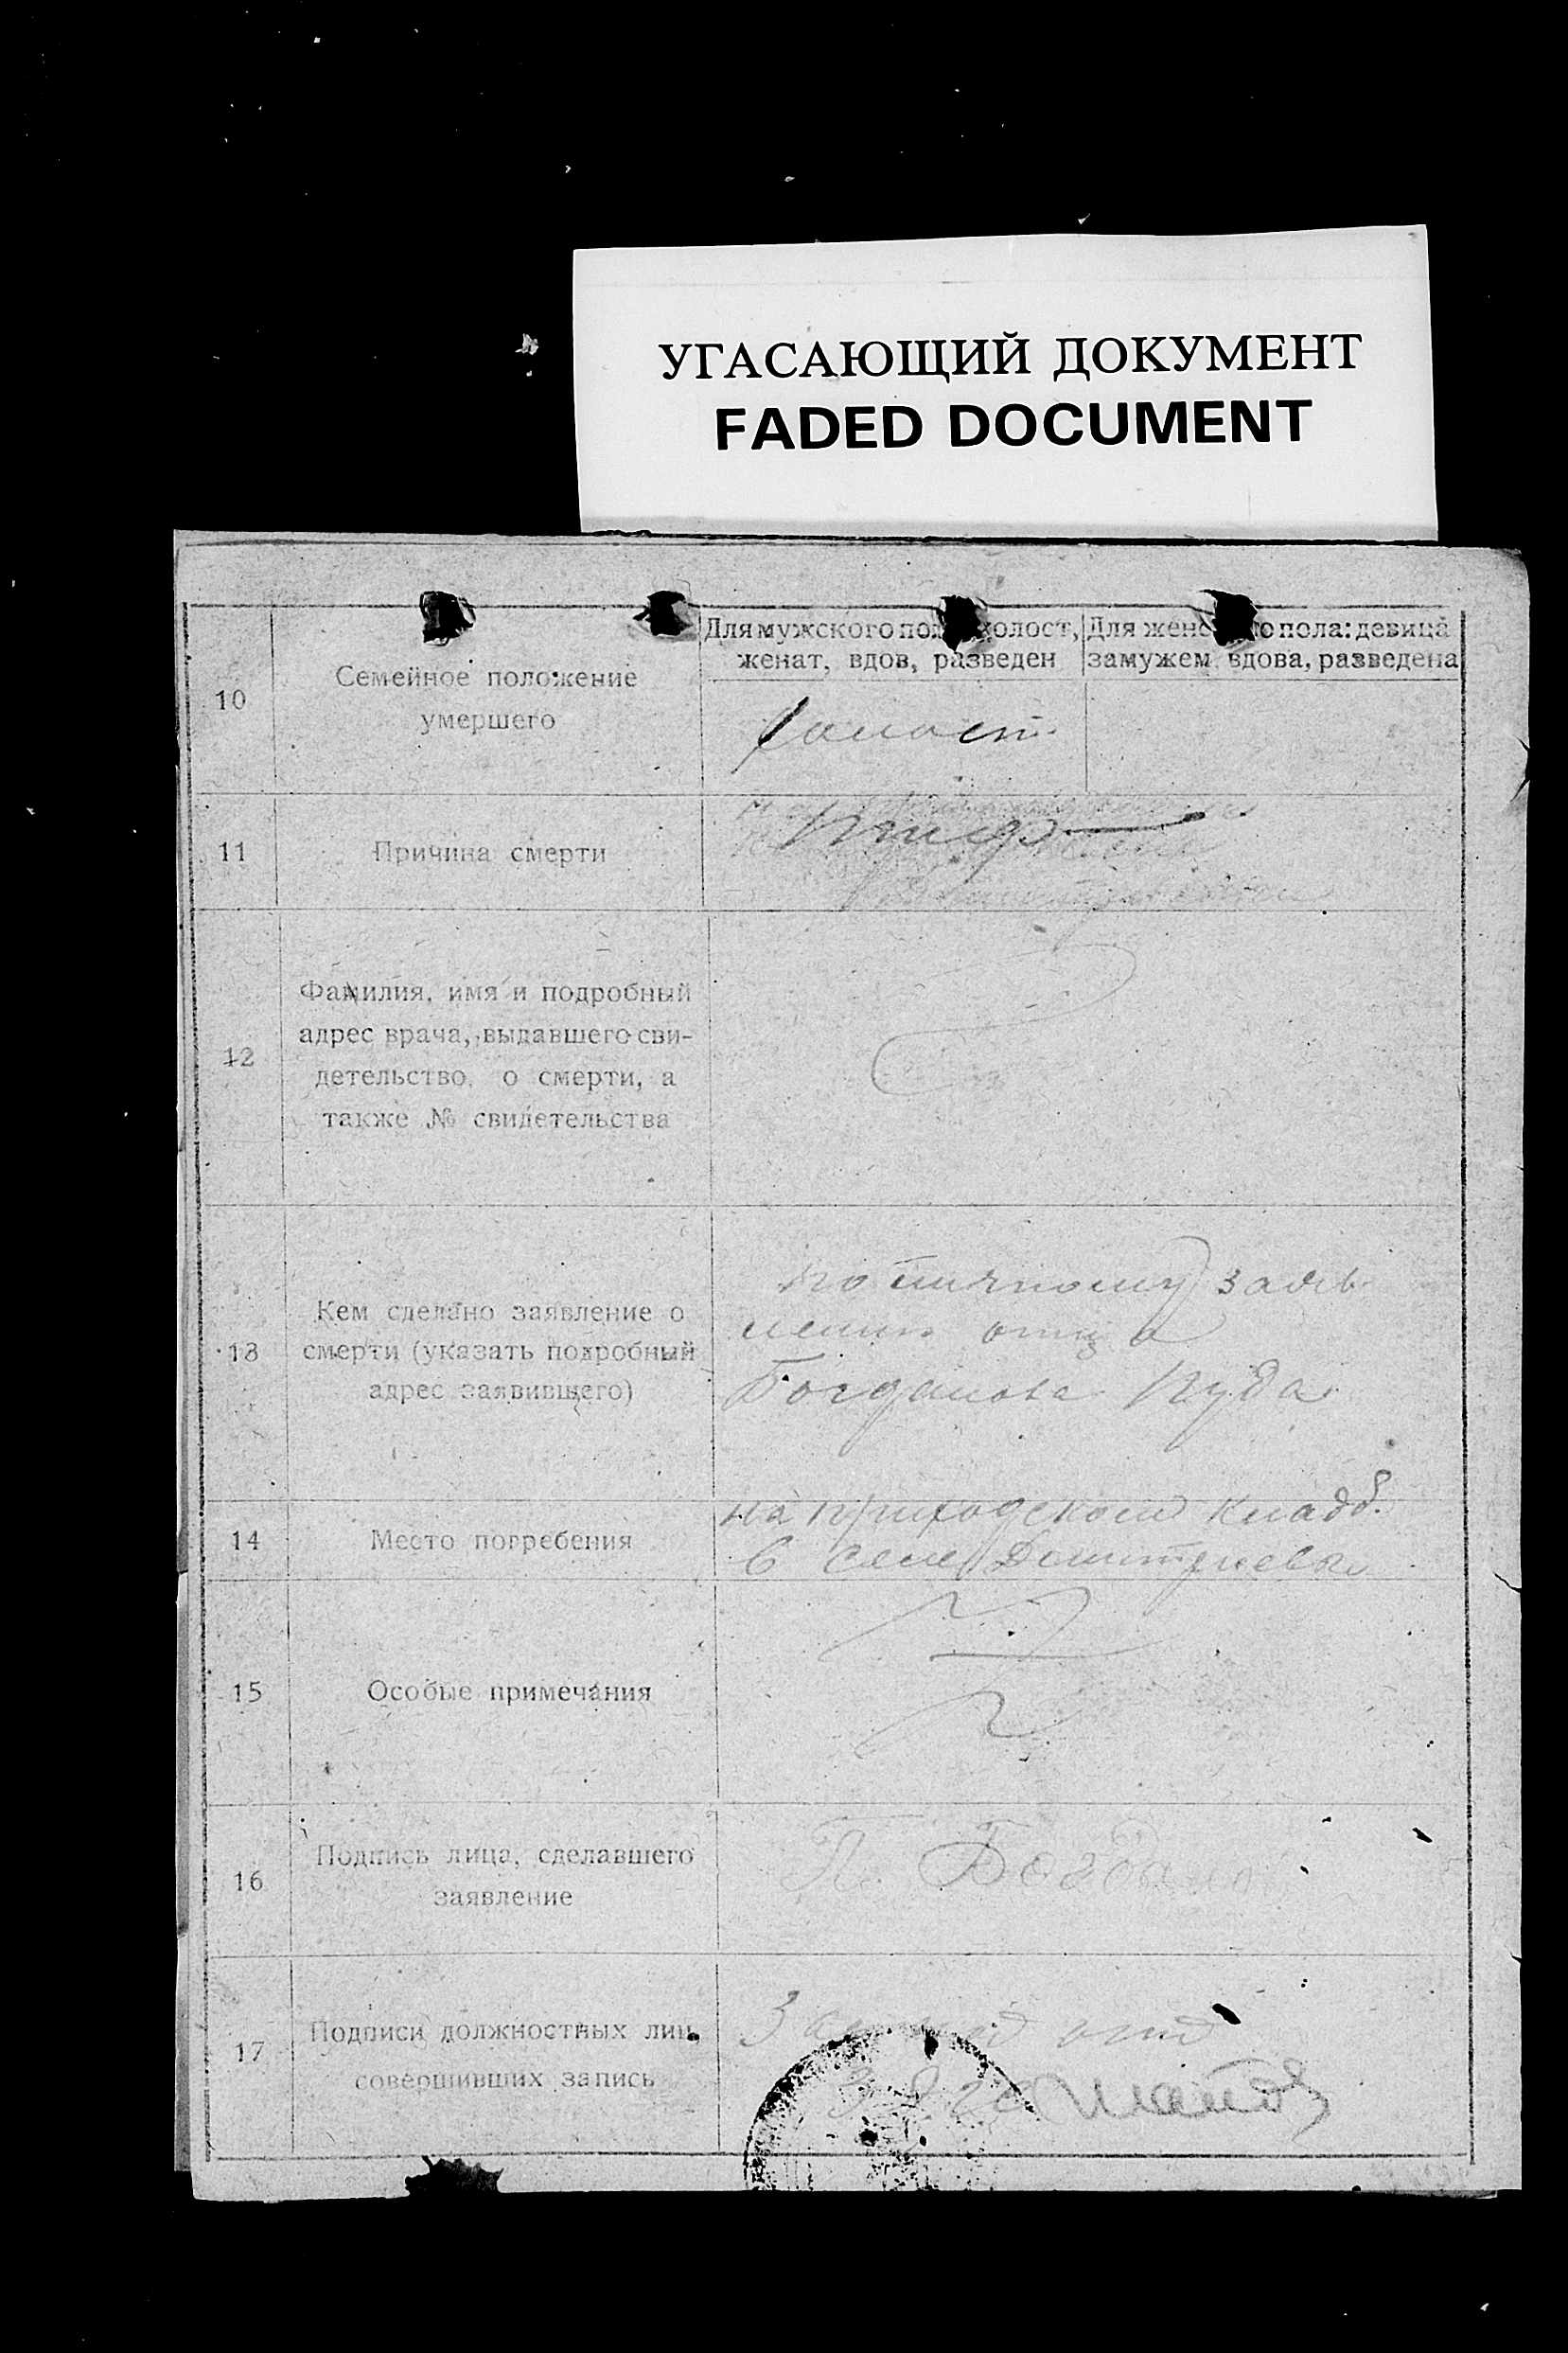 УГАСАЮЩИЙ ДОКУМЕНТ
FADED DOCUMENT
10
Семейное положение
умершего
Для мужского пола: холост,
женат, вдов, разведен
Для женского пола: девица
замужем, вдова, разведена
холост
11
Причина смерти
12
Фамилия, имя и подробный
адрес врача, выдавшего сви-
детельство о смерти, а
также № свидетельства
13
Кем сделано заявление о
смерти (указать подробный
адрес заявившего)
по личному заяв
лению отца
Богданова Пуда
14
Место погребения
на приходском кладб.
в селе
15
Особые примечания
16
Подпись лица, сделавшего
заявление
П. Богдано
17
Подписи должностных лиц,
совершивших запись